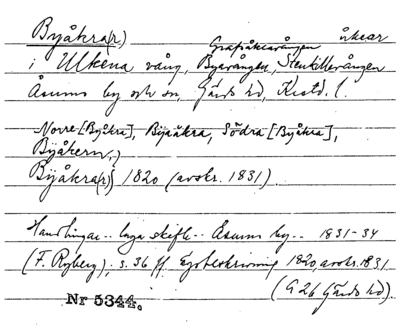 Byåkra(r) åkrar
i Ulkena vång, Grafsåkravången Byavången, Stenkillevången
Åsums by och sn, Gärds hd, Kristd. l.
Norre [Byåkra], Bijåkra, Södra [Byåkra],
Byåkern,
Bijåkra(r) 1820 (avskr. 1831).
Handlingar .. laga skifte .. Åsums by .. 1831-34
(F. Ryberg), s. 36 ff Egobeskrivning 1820, avskr. 1831
(G 26 Gärds hd).
Nr 5344.